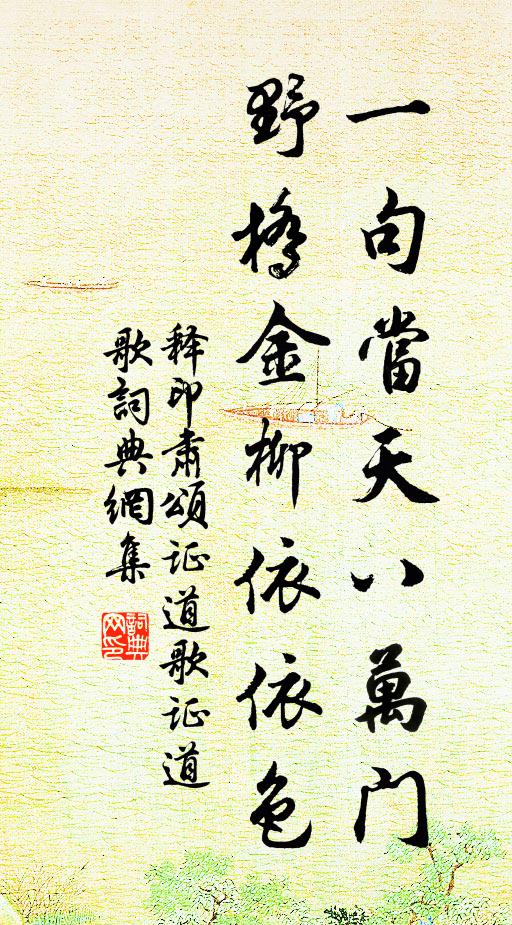 一句當天八萬門
野橋金柳依依色
释印肃頌证道歌证道
歌詞典網集
詞典
网印